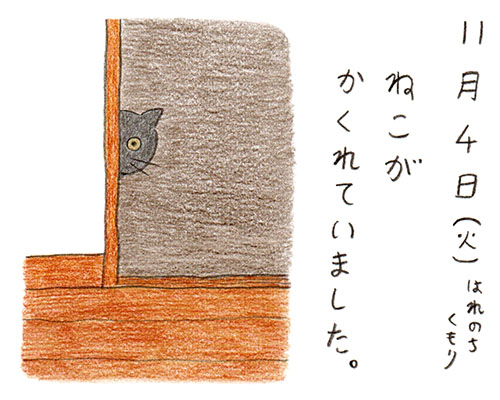 11月4日(火)はれのち
くもり
ねこが
かくれていました。